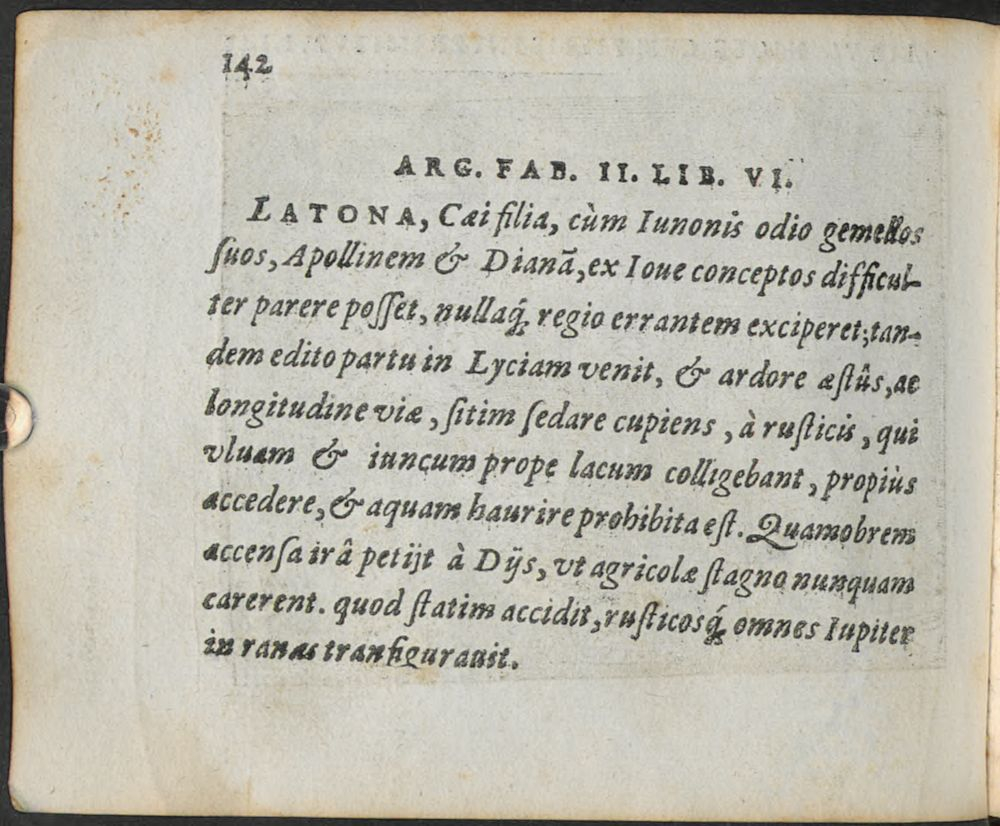 142
ARG. FAB. II. LIB. VI.
LATONA, Cæi filia, cùm Iunonis odio gemellos
ſuos, Apollinem & Dianā, ex Ioue conceptos difficul-
ter parere poſſet, nullaq́; regio errantem exciperet; tan-
dem edito partu in Lyciam venit, & ardore æſtûs, ac
longitudine viæ, ſitim ſedare cupiens, à ruſticis, qui
vluam & iuncum prope lacum colligebant, propiùs
accedere, & aquam haurire prohibita eſt. Quamobrem
accenſa irâ petijt à Dijs, vt agricolæ ſtagno nunquam
carerent. quod ſtatim accidit, ruſticosq́; omnes Iupiter
in ranas tranſfigurauit.